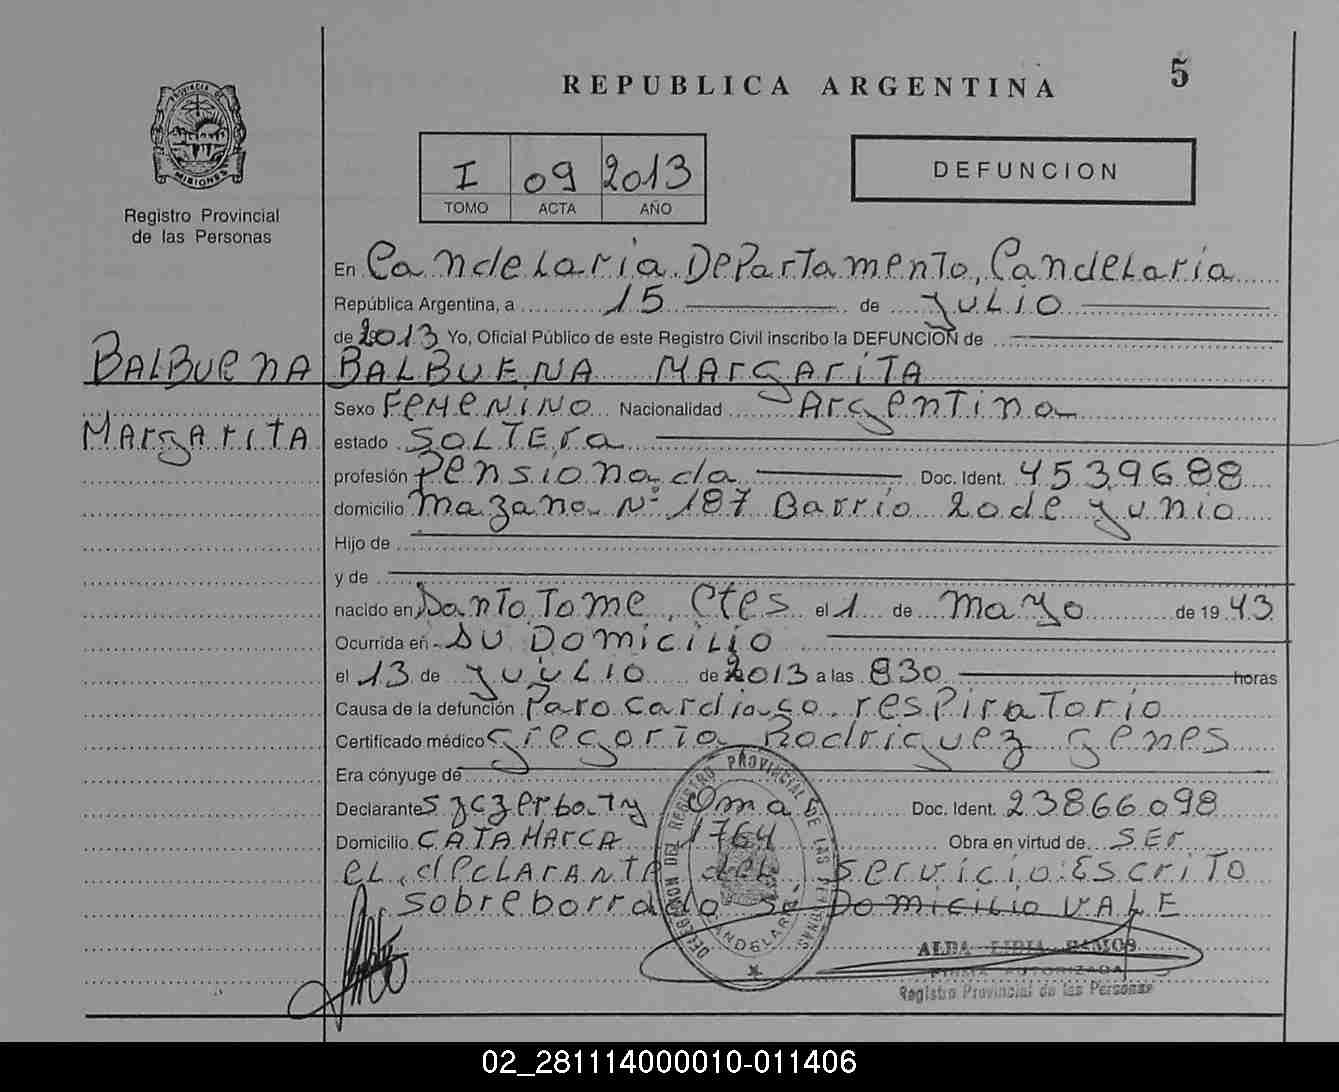 REPUBLICA ARGENTINA
5
PROVINCIA DE
MISIONES
Registro Provincial
de las Personas
I 09 2013
TOMO ACTA AÑO
DEFUNCION
En Candelaria Departamento, Candelaria
República Argentina, a 15 de Julio
de 2013 Yo, Oficial Público de este Registro Civil inscribo la DEFUNCIÓN de
BALBUENA BALBUENA MARGARITA
MARGARITA
Sexo FEMENINO Nacionalidad Argentina
estado SOLTERA
profesión Pensionada Doc. Ident. 4539688
domicilio Mazano Nº 187 Barrio 20 de Junio
Hijo de
y de
nacido en Santo Tome, Ctes el 1 de Mayo de 1943
Ocurrida en SU DOMICILIO
el 13 de JULIO de 2013 a las 830 horas
Causa de la defunción Paro cardiaco respiratorio
Certificado médico Gregorio Rodriguez Genes
Era cónyuge de
Declarante Szczerbaty Oma Doc. Ident. 23866098
Domicilio CATAMARCA 1764 Obra en virtud de SER
EL DECLARANTE DEL SERVICIO ESCRITO
sobreborrado SU DOMICILIO VALE
DELEGACION DEL REGISTRO PROVINCIAL DE LAS PERSONAS
CANDELARIA
ALBA LIDIA RAMOS
FIRMA AUTORIZADA
Registro Provincial de las Personas
02_281114000010-011406